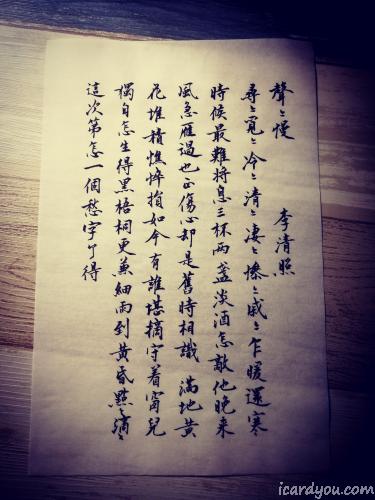 聲〻慢 李清照
尋〻覓〻冷〻清〻凄〻慘〻戚〻乍暖還寒
時候最難將息三杯兩盞淡酒怎敵他晚来
風急雁過也正傷心却是舊時相識 滿地黃
花堆積憔悴損如今有誰堪摘守着窗兒
獨自怎生得黑梧桐更兼細雨到黃昏點〻滴〻
這次第怎一個愁字了得
icardyou.com